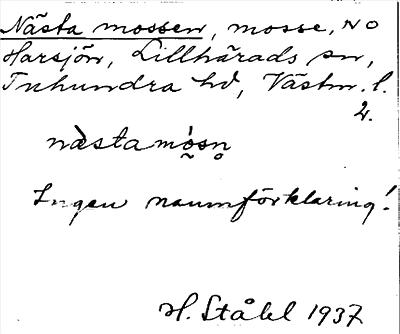 Nästa mossen, mosse, NO
Harsjön, Lillhärads sn,
Tuhundra hd, Västm. l.
2.
næsta mòsn̥
Ingen namnförklaring!
H. Ståhl 1937